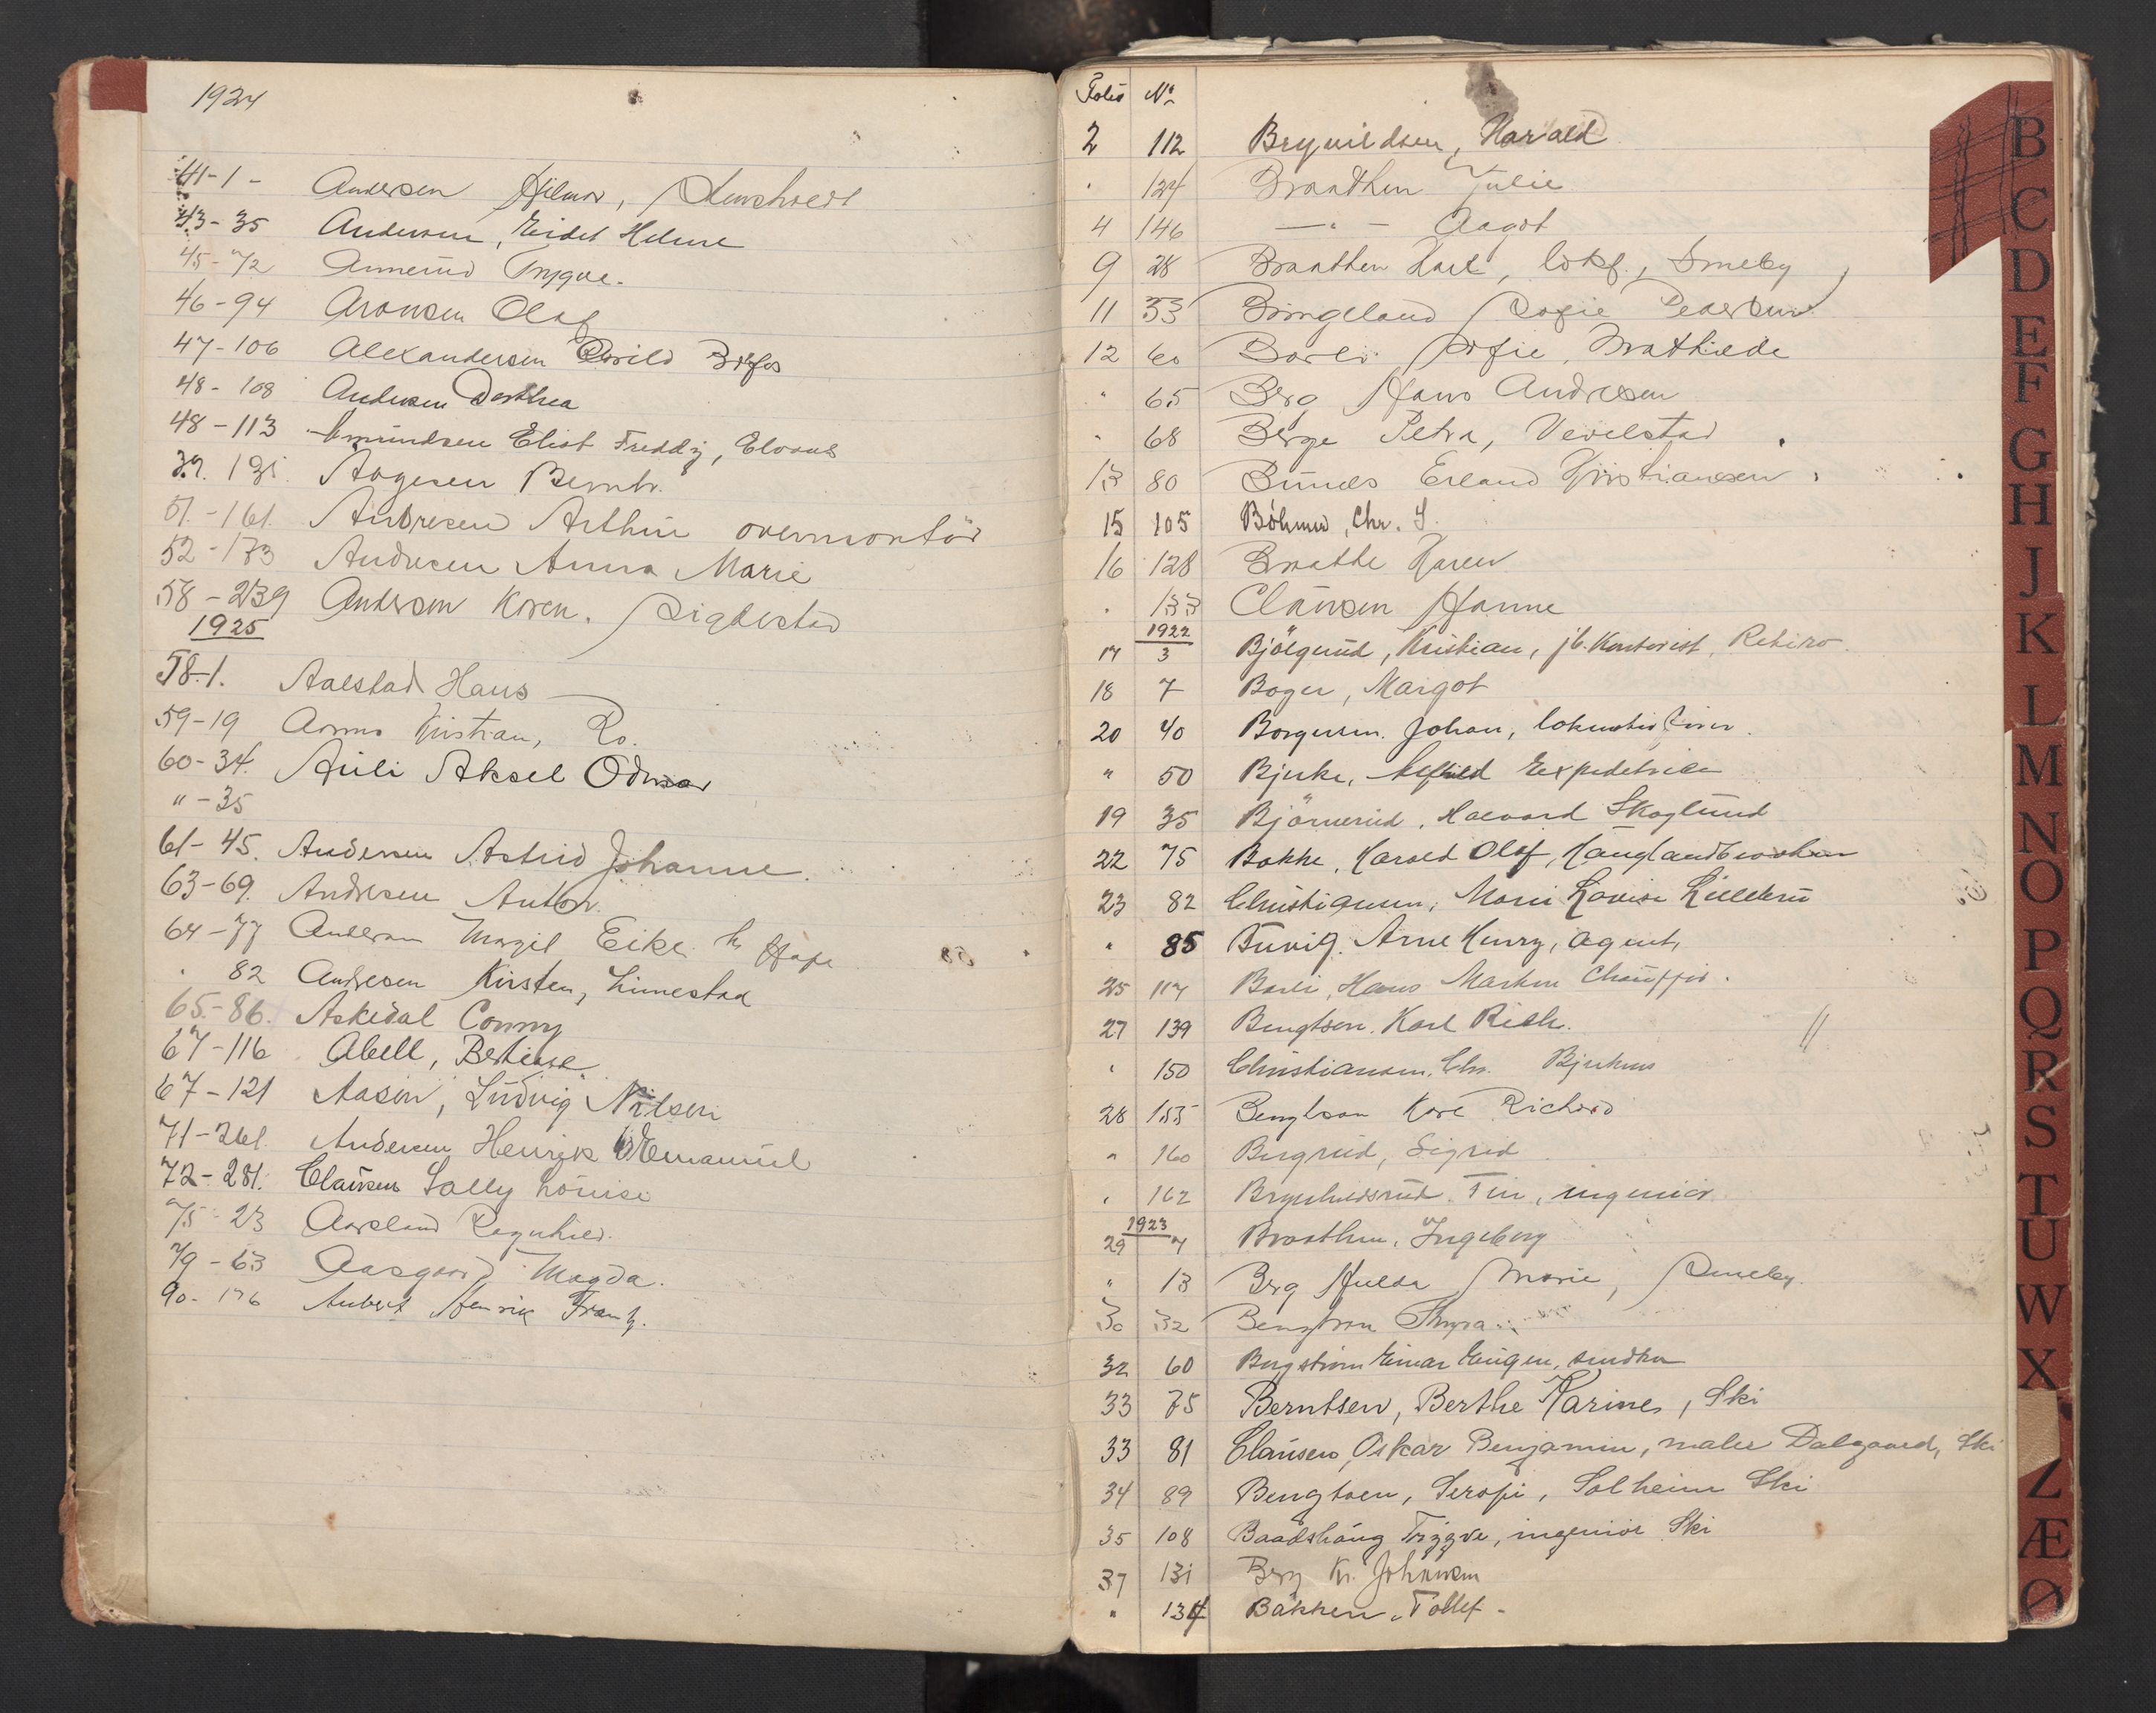 1924
41-1- Andersen Hilmar,
43-35 Andersen, Eidel Helene
45-72 Annerud Trygve.
46-94 Aronsen Olaf
47-106 Alexandersen
48-108 Andersen Dorthea
48-113 Amundsen Elist Freddy,
39. 131. Aagesen Bernh.
51.-161. Andresen Arthur overmontör
52-173 Andresen Anna Marie
58-239 Andersen Karen.
1925
58-1. Aalstad Hans
59-19 Aamo Kristian, Ro.
60-34. Auli Aksel Odmar
"-35
61-45. Andersen Astrid Johanne.
63-69. Andresen Anton.
64-77 Andersen Margit Eike
" 82 Andresen Kirsten, Linnestad
65.-86. Askedal Conny
67-116 Abell, Bertine
67-121 Aasen, Ludvig Nilsen
71-261. Andersen Henrik Emanuel
72-281. Clausen Sally Louise
75-23 Aarsland Ragnhild.
79-63 Aasgaard Magda.
90-176 Aubert Henrik Frantz.
Folio No
2 112 Brynildsen, Harald
" 124 Braathen Julie
4 146 —"— Aagot
9 28 Braathen Karl, lokf., Smeby
11 33 Bringeland Sofie Pedersen
12 60 Sofie, Mathilde
" 65 Berg Hans Andresen
" 68 Berge Petra, Vevelstad
13 80 Erland Kristiansen
15 105 Böhmer, Chr. S.
16 128 Braathe Karen
" 133 Clausen Hanne
1922
17 3 Bjölgerud, Kristian, jb. Kontorist, Retiro.
18 7 Boger, Margot
20 40 Borgersen. Johan, lokomotivfirer.
" 50 Bjerke, Alfhild Expeditrice
19 35 Björnerud, Haavard Skoglund
22 75 Bakke, Harald Olaf,
23 82 Christiansen, Marie Lovise
" 85 Arne Henry, agent,
25 117 Barli, Hans Martin Chauffør.
27 139 Bengtson. Karl Rich.
" 150 Christiansen, Chr.
28 155 Bengtson Karl Richard
" 160 Bergrud, Sigrid
" 162 Brynhildsrud. Fin, ingeniør
1923
29 7 Braathen, Ingeborg
" 13 Berg Hulda Marie, Smeby.
30 32 Bengtson Thyra
32 60 Bergström Einar Eugen, snedker
33 75 Berntsen, Berthe Karine, Ski
33 81 Clausen, Oskar Benjamin, maler Dalgaard, Ski
34 89 Bengtsen, Serafi, Solheim Ski
35 108 Baadshaug Trygve, ingeniør Ski
37 131 Berg Kr. Johansen
" 134 Bakken, Tollef-
B
C
D
E
F
G
H
J
K
L
M
N
O
P
Q
R
S
T
U
W
X
Z
Æ
Ø